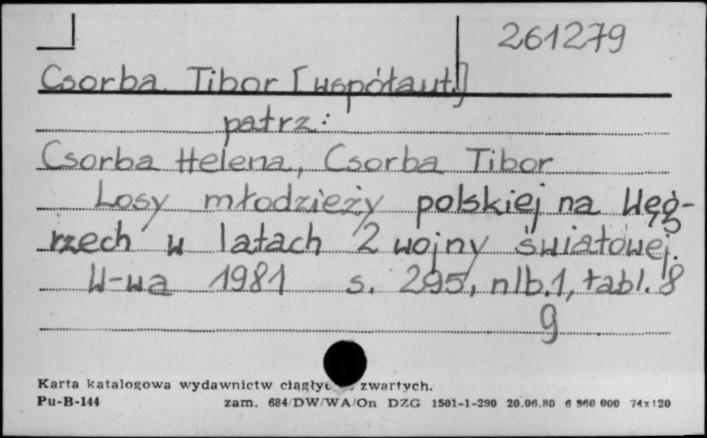 261279
Csorba Tibor [współaut.]
patrz:
Csorba Helena, Csorba Tibor
Losy młodzieży polskiej na Węg-
rzech w latach 2 wojny światowej.
W-wa 1981 s. 295, nlb.1, tabl. 8
9
Karta katalogowa wydawnictw zwartych.
Pu-B-144 zam. 684/DW/WA/On DZG 1501-1-290 20.06.80 6 960 000 74x120